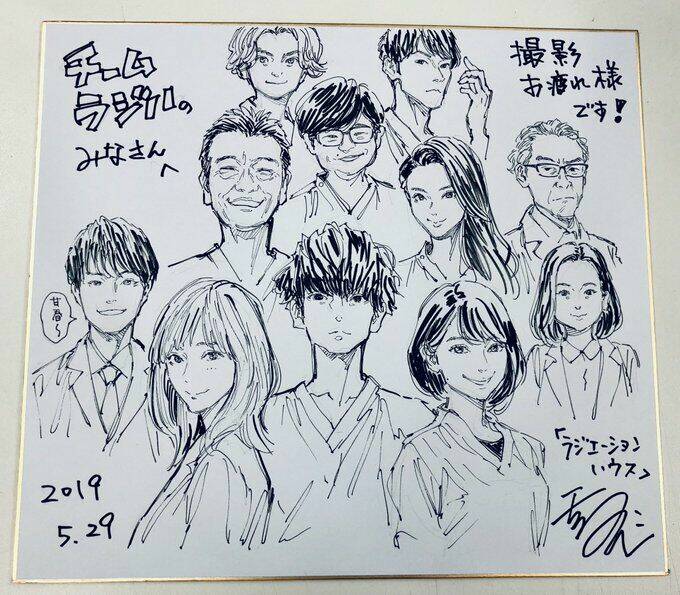 チーム
ラジハの
みなさんへ
撮影
お疲れ様
です！
甘春〜
2019
5.29
「ラジエーション
ハウス」